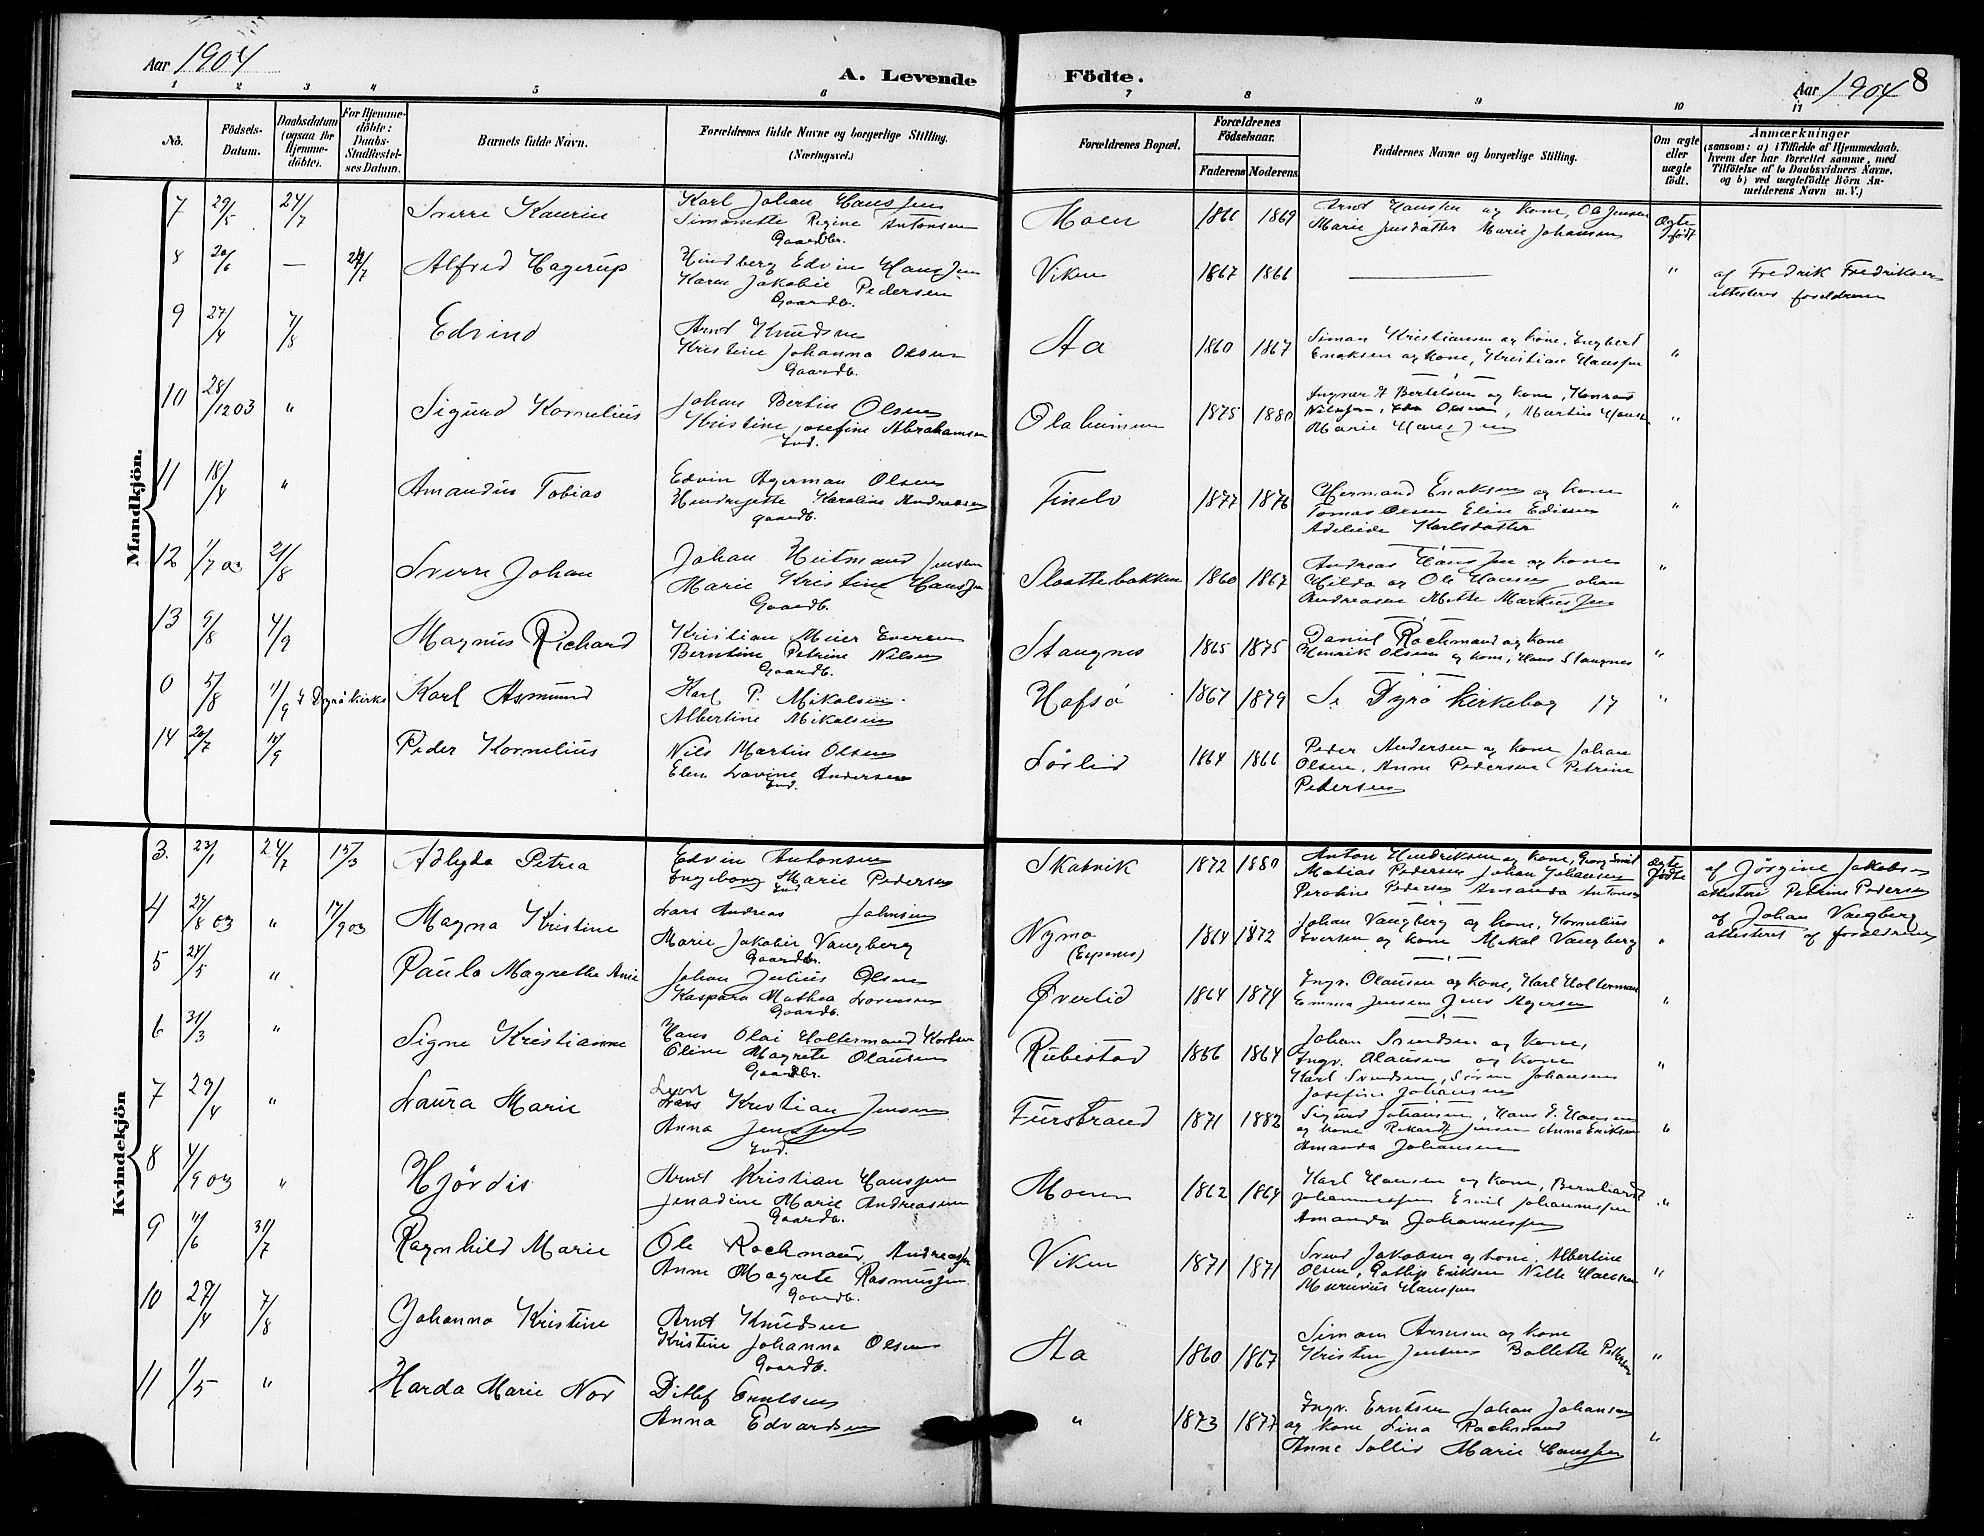 Aar 1904
A. Levende Födte.
Aar 1904 8
1 2 3 4 5 6 7 8 9 10 11
No.
Födsels-Datum.
Daabsdatum (ogsaa for Hjemme-döbte).
For Hjemme-döbte: Daabs-Stadfæstel-ses Datum.
Barnets fulde Navn.
Forældrenes fulde Navne og borgerlige Stilling. (Næringsvei.)
Forældrenes Bopæl.
Forældrenes Födselsaar.
Faderens Moderens
Faddernes Navne og borgerlige Stilling.
Om ægte eller uægte födt.
Anmærkninger
(saasom: a) i Tilfælde af Hjemmedaab.
hvem der har forrettet samme, med
Tilföielse af to Daabsvidners Navne,
og b) ved uægtefödte Börn An-
melderens Navn m. V.)
Mandkjön.
7 29/5 24/7 Sverre Kaurin
Karl Johan Hanssen
Simonette Regine Antonsen
Gaardbr.
Moen 1866 1869
Arnt Hanssen og kone, Ole Jensen
Marie Jensdatter Marie Johansen
Ægte födt
8 20/6 — 24/7 Alfred Hagerup
Hindberg Edvin Hanssen
Karen Jakobie Pedersen
Gaardb.
Viken 1867 1866 — "
af Fredrik Fredriksen
attesteres foreldrene
9 27/4 7/8 Edvind
Arnt Knudsen
Kristine Johanna Olsen
Gaardb.
Aa 1860 1867
Simon Kristiansen og kone, Engbert
Enoksen og kone, Kristian Hanssen "
10 28/12 03 " Sigurd Kornelius
Johan Bertin Olsen
Kristine Josefine Abrahamsen
Ind.
Olaheimen 1875 1880
Ingvar H Bertelsen og kone, Konrad
Nilssen, Olsen, Martin Hansen
Marie Hanssen "
11 18/4 " Amandus Tobias
Edvin Agerman Olsen
Hendrigette Karoline Andreasen
Gaardb.
Finelv 1877 1876
Hermand Enoksen og kone
Tomas Olsen Eline
Adeleide Karlsdatter "
12 1/7 03 21/8 Sverre Johan
Johan Heitmand Jensen
Marie Kristine Hanssen
Gaardb.
Slaattebakken 1860 1867
Andreas Hanssen og kone
Hilda og Ole Hansen Johan
Andreasen Mette Markussen "
13 9/8 4/9 Magnus Richard
Kristian Meier Eversen
Berntine Petrine Nilsen
Gaardb.
Stangnes 1865 1875
Daniel Rochmand og kone
Henrik Olsen og kone, Hans Stangnes "
0 5/8 11/9 i Dyrö kirke Karl Asmund
Karl P. Mikalsen
Albertine Mikalsen
Hofsö 1867 1879 Se Dyrö kirkebog 17 "
14 20/7 18/9 Peder Kornelius
Nils Martin Olsen
Elen Lovine Andersen
Ind.
Sörlid 1864 1866
Peder Andersen og kone Johan
Olsen, Anne Pedersen Petrine
Pedersen
Kvindekjön
3. 23/1 24/7 15/3 Adlyde Petrea
Edvin Antonsen
Ingeborg Marie Pedersen
Ind
Skatvik 1872 1880
Anton Hendriksen og kone, Georg Smid
Matias Pedersen Johan Johansen
Peroline Pedersen Amanda Antonsen
Ægte födte
af Jörgine Jakobsen
attesteri Petrine Pedersen
4 27/8 03 " 17/9 03 Magna Kristine
Lars Andreas Johnsen
Marie Jakobie Vangberg
Gaardbr.
Nymo
(Espenes) 1864 1872
Johan Vangberg og kone, Kornelius
Eversen og kone Mikal Vangberg "
af Johan Vangberg
attesteret af foreldrene
5 24/5 " Paula Magrethe Anie
Johan Julius Olsen
Kaspara Mathea Lorensen
Gaardb.
Överlid 1864 1874
Ingv. Olausen og kone, Karl Holterman
Emma Jensen Jens Agersen "
6 31/3 " Signe Kristianne
Hans Olai Holtermand Karlsen
Oline Magrete Olausen
Gaardbr.
Rubestad 1856 1864
Johan Svendsen og kone,
Ingv. Olausen og kone
Karl Svendsen, Sören Johansen
Josefine Johansen "
7 29/4 " Laura Marie
Lars Kristian Jensen
Anna Jenssen
Ind.
Furstrand 1871 1882
Sigurd Johansen, Hans J. Hansen
og kone Rikardt Jensen Anna Eriksen
Amanda Johansen "
8 4/9 03 " Hjördis
Arnt Kristian Hanssen
Jenadine Marie Andreasen
Gaardb.
Moen 1862 1864
Karl Hansen og kone, Bernhardt
Johannessen Emil Johannessen
Amanda Johannessen "
9 11/6 31/7 Ragnhild Marie
Ole Rochmand Andreassen
Anne Magrete Rasmussen
Gaardb.
Viken 1871 1871
Svend Jakobsen og kone, Albertine
Olsen, Eriksen Nille Hanssen
Hanssen "
10 27/4 7/8 Johanna Kristine
Arnt Knudsen
Kristine Johanna Olsen
Gaardb.
Aa 1860 1867
Simon Arnesen og kone
Kristen Jensen Bollette Pedersen "
11 11/5 " Harda Marie Nor
Ditlef Erntsen
Anna Edvardsen
" 1873 1877
Ingv. Erntsen Johan Johansen
og kone Lina Rochmand
Anne Sollid Marie Hanssen "